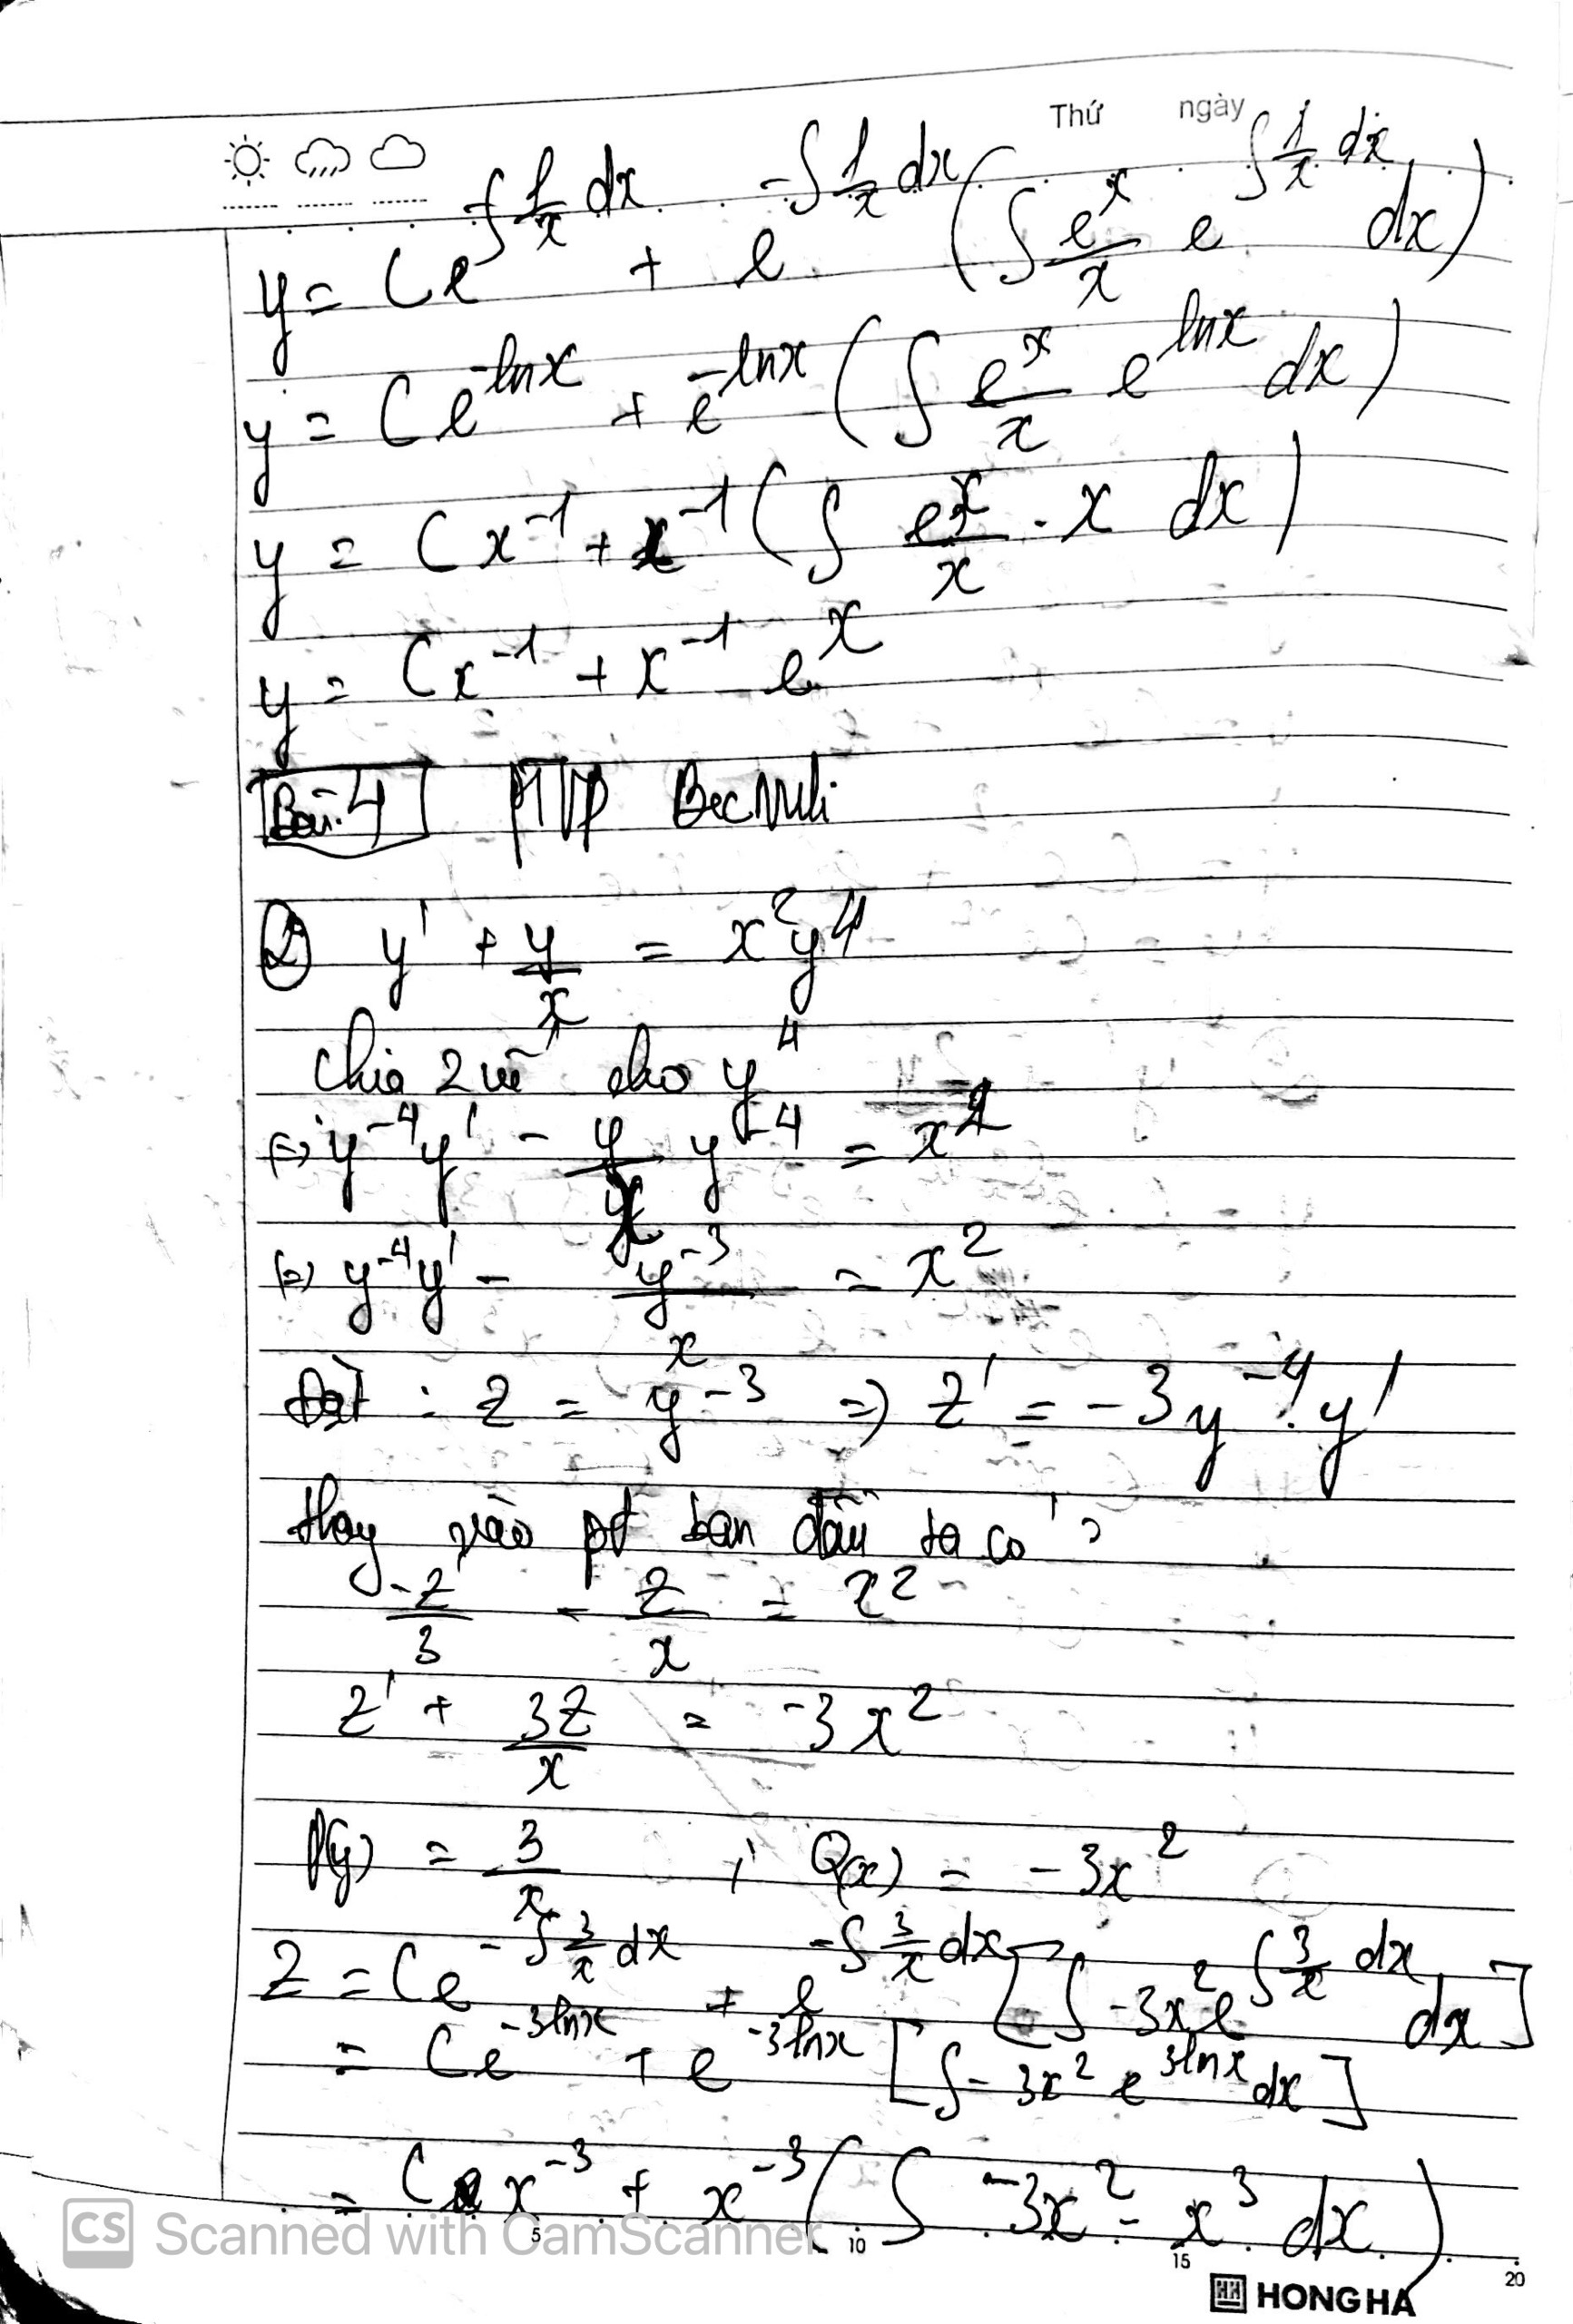 Thứ ngày
y = Ce^{-∫ 1/x dx} + e^{-∫ 1/x dx} (∫ e^x/x e^{∫ 1/x dx} dx)
y = Ce^{-lnx} + e^{-lnx} (∫ e^x/x e^{lnx} dx)
y = Cx^{-1} + x^{-1} (∫ e^x/x . x dx)
y = Cx^{-1} + x^{-1} e^x
Bài 4 PTVP Becnuli
② y' + y/x = x^2y^4
chia 2 vế cho y^4
(=) y^{-4}y' - y/x y^{-4} = x^2
(=) y^{-4}y' - y^{-3}/x = x^2
Đặt : z = y^{-3} => z' = -3y^{-4}. y'
thay vào pt ban đầu ta có :
-z'/3 - z/x = x^2
z' + 3z/x = -3x^2
P(y) = 3/x , Q(x) = -3x^2
z = Ce^{-∫ 3/x dx} + e^{-∫ 3/x dx} [∫ -3x^2 e^{∫ 3/x dx} dx]
= Ce^{-3lnx} + e^{-3lnx} [∫ -3x^2 e^{3lnx} dx]
= C x^{-3} + x^{-3} (∫ -3x^2 - x^3 dx)
CS Scanned with CamScanner
5 10 15 20
HONG HA